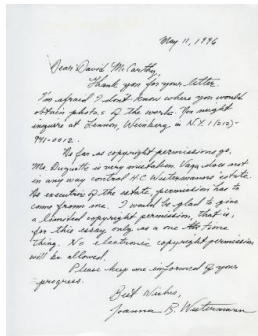 May 11, 1996
Dear David McCarthy,
Thank you for your letter.
I'm afraid I don't know where you would
obtain photos of the works. You might
inquire at Lennon, Weinberg in N.Y. 1(212)-
941-0012.
As far as copyright permissions go,
Mr. is very mistaken. Vaga does not
in any way control H.C. Westermann's estate.
As executor of the estate, permission has to
come from me. I would be glad to give
a limited copyright permission, that is,
for this essay only as a one time
thing. No electronic copyright permission
will be allowed.
Please keep me informed of your
progress.
Best Wishes,
Joanna B. Westermann